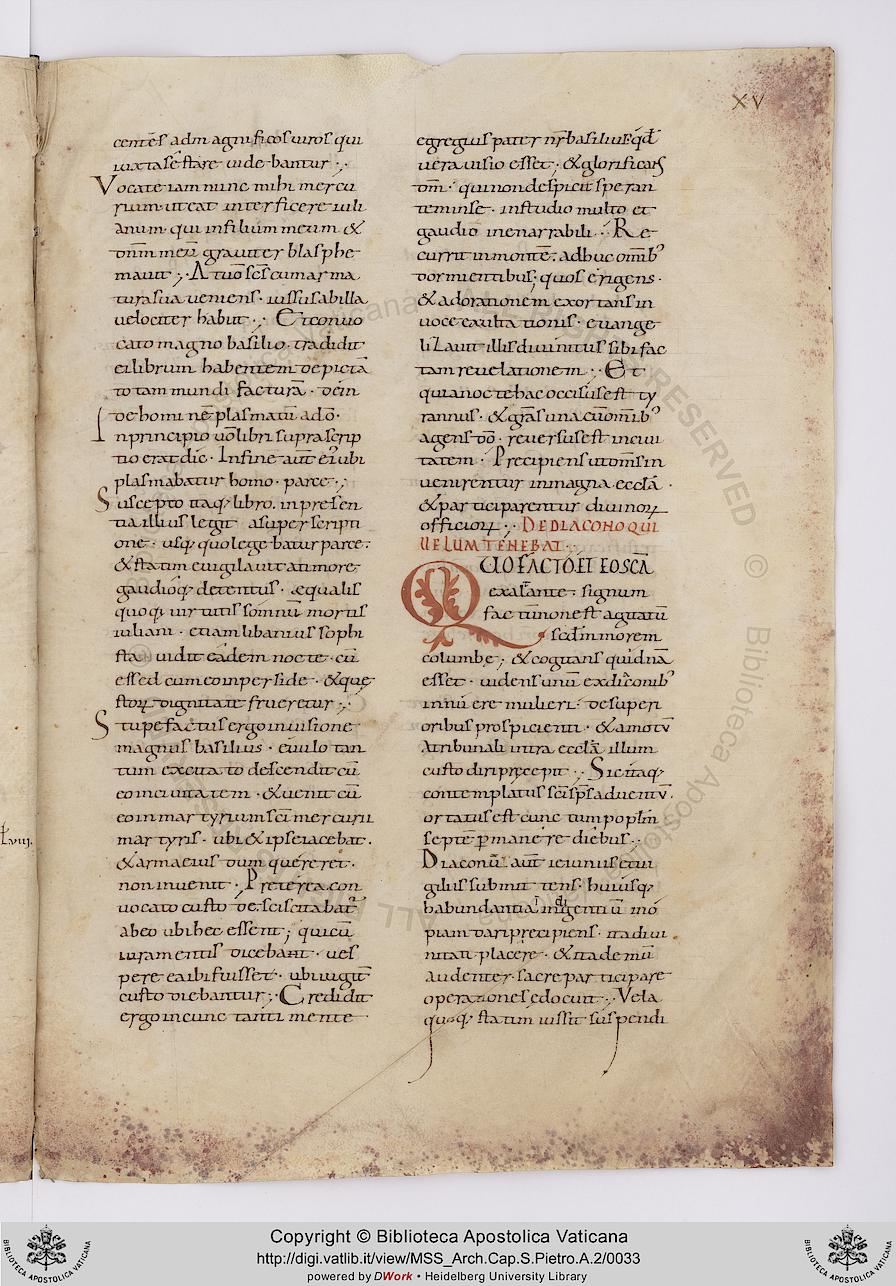 XV
centes ad magnificos uiros qui
iuxta se stare uidebantur ·,·
Vocate iam nunc mihi mercu
rium · ut eat interficere iuli
anum · qui in filium meum &
dnm meū grauiter blasphe
mauit ·,· Atuō scs cum arma
tura sua ueniens · iussus ab illa
uelociter habiit ·,· Et conuo
cato magno basilio · tradidit
ei librum habentem depictā
totam mundi facturā · dein
de homine plasmatū a dō ·
In principio uō libri suprascrip
tio erat dic · In fine aut ei ubi
plasmabatur homo · parce ·,·
Suscepto itaq libro · in presen
tia illius legit a superscripti
one · usq quo legebatur parce :
& statim euigilauit a timore
gaudioq detentus · aequalis
quoq uirtutis somnū mortis
iuliani · etiam libanius sophi
sta uidit eadem nocte · cū
essed cum eo in perside · & que
stor dignitate frueretur ·,·
Stupefactus ergo in uisione
magnus basilius · euulo tan
tum excitato descendit cū
eo in ciuitatem · & uenit cū
eo in martyrium sci mercurii
martyris · ubi & ipse iacebat ·
& arma eius dum quereret ·
non inuenit · Preterea con
uocato custode · sciscitabat
ab eo ubi hec essent ; qui cū
iuramentis dicebant · ues
pere ea ibi fuisset · ubi iugit
custodiebantur ·,· Credidit
ergo in eunc tanti mente
egregius pater nr basilius · qd
uera uisio esset ; & glorificans
dm · qui non despicit speran
tem in se · in studio multo et
gaudio inenarrabili ·,· Re
currit in monte · adhuc omib
dormientibus ; quos erigens ·
& adorationem exortans in
uoce exultationis · euange
lizauit illis diuinitus sibi fac
tam reuelationem ·,· Et
quia nocte hac occisus est ty
rannus · & gras una cū omib
agens dō · reuersus est in ciui
tatem · Precipiens ut oms in
uenirentur in magna eccla ·
& participarentur diuinor
officior ·,· DE DIACONO QUI
UELUM TENEBAT ·
QUO FACTO · ET EO SCA
exaltante · signum
factū non est agitatū
scdm morem
columbe ; & cogitans quidnā
esset · uidens unū ex diaconib
innuere mulieri · desuperi
oribus prospicienti · & amotū
a tribunali intra ecclā illum
custodiri precepit ·,· Sicitaq
contemplatus sci sps aduentū ·
ortatus est cunctum poplm
septē pmanere diebus ·,
Diaconū aut ieiuniis et ui
giliis submittens · huiusq
habundantia indigentiū ino
piam dari precipiens · ita diui
nitati placere · & ita demū
audenter sacre participare
operationes edocuit ·,· Vela
quoq statim iussit suspendi
Copyright © Biblioteca Apostolica Vaticana
http://digi.vatlib.it/view/MSS_Arch.Cap.S.Pietro.A.2/0033
powered by DWork • Heidelberg University Library